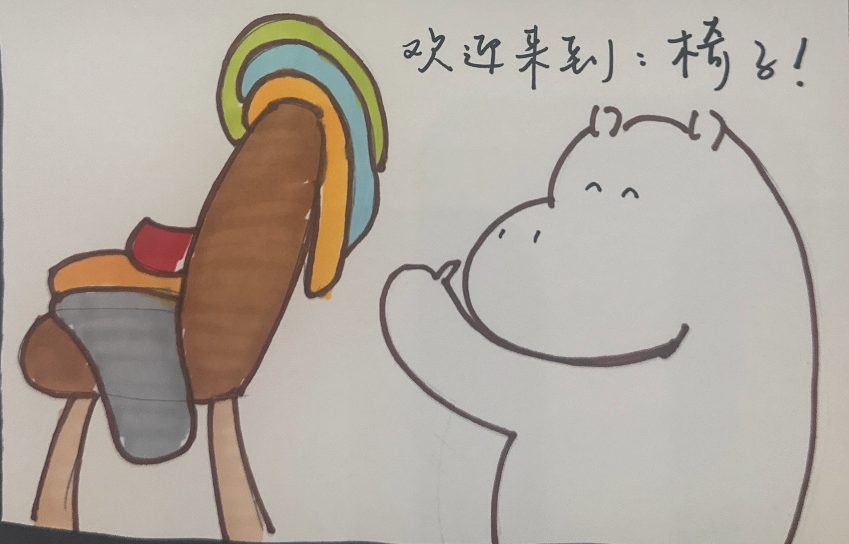 欢迎来到：椅子！